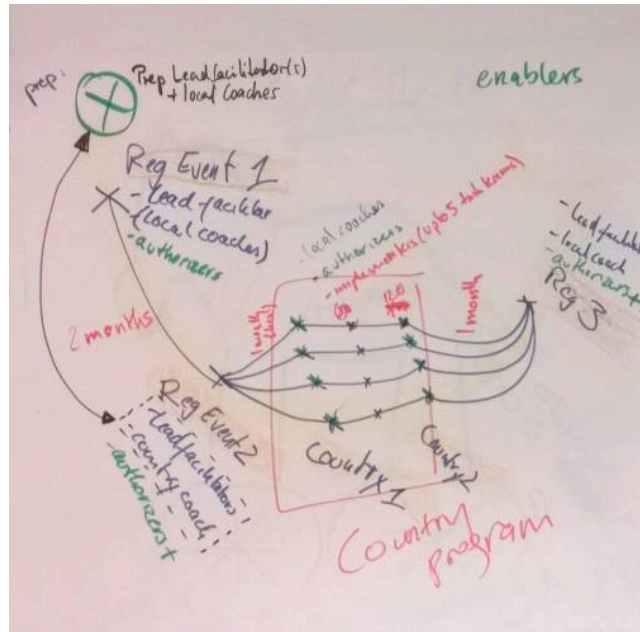 prep:
Prep Lead facilitator(s)
+ local Coaches
enablers
Reg Event 1
- Lead facilitator
(local coaches)
- authorizers
- local coaches
- authorizers
- implementers (up to 5 task teams)
2 months
1 week
120
1 month
- lead facilit
- local coach
- authorizers
Reg 3
Reg Event 2
- lead facilitators
- country coach
- authorizers +
Country 1
Country 2
Country
program